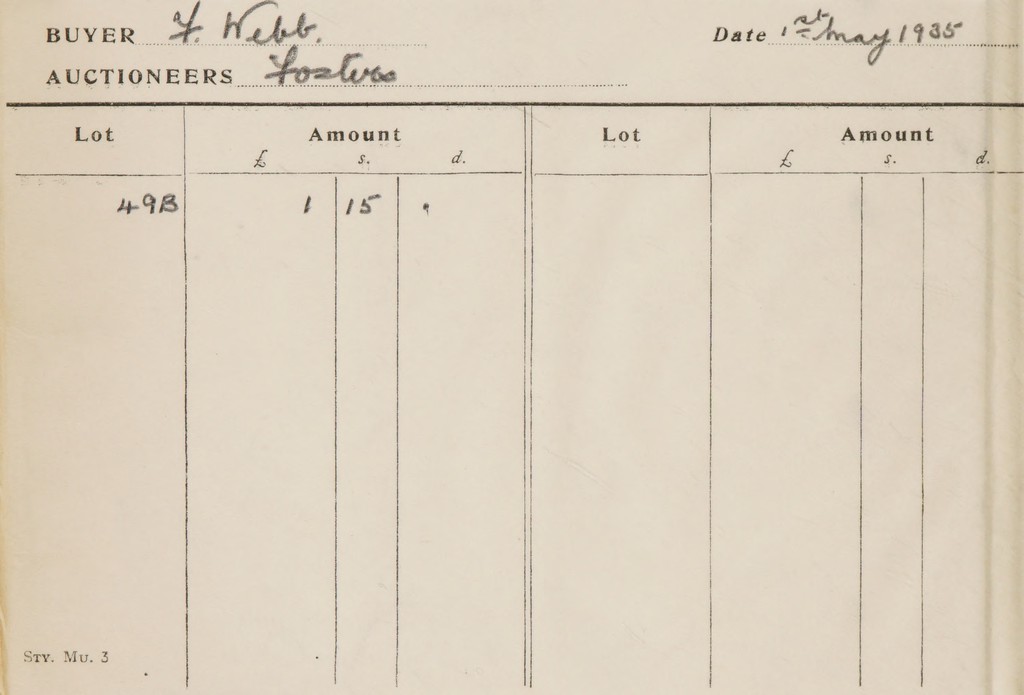 BUYER F. Webb. Date 1st May 1935
AUCTIONEERS Fosters
Lot Amount Lot Amount
£ s. d. £ s. d.
49B 1 15 "
STY. MU. 3